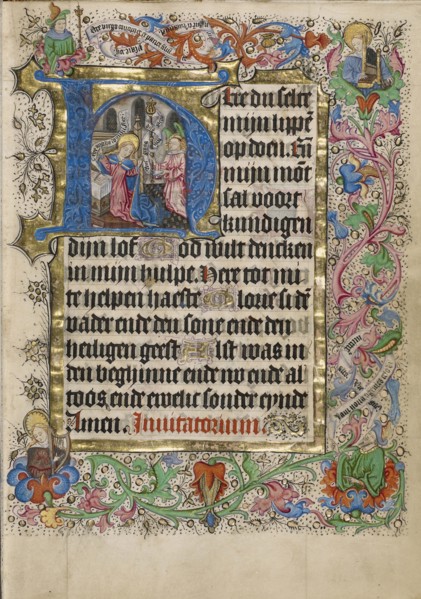 Ecce virgo concipiet & pariet
Here du selt
mijn lippē
op doen. Eñ
mijn mōt
sal voort
kundigen
dijn lof God wilt dencken
in mijn hulpe. Here tot mi
te helpen haeste Glorie si dē
vader ende den sone ende den
heiligen geest Alst was in
den beghinne ende nv ende al
toos ende ewelic sonder eynde
Amen. Inuitatorium.